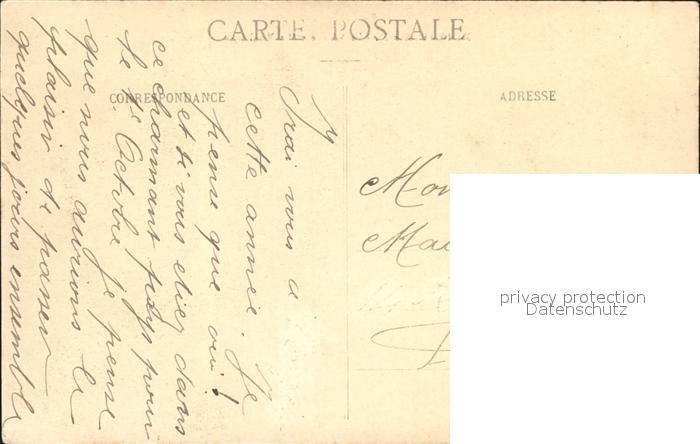 CARTE POSTALE
CORRESPONDANCE
ADRESSE
y
Irai vous a
cette année. Je
pense que oui!
et si vous étiez dans
ce charmant pays pour
le Octobre je pense
que nous aurions le
plaisir de passer
quelques jours ensemble
Mon
Mad
privacy protection
Datenschutz